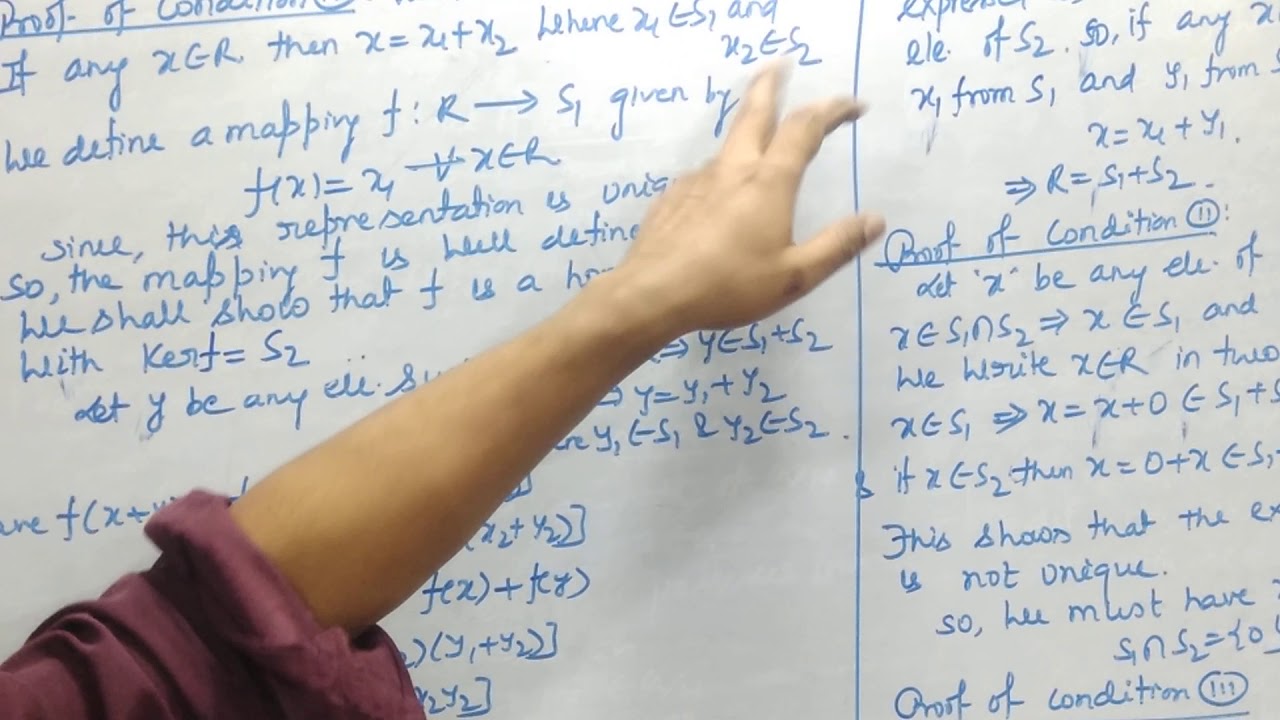 Proof of Condition
If any x∈R. then x = x₁+x₂ where x₁∈S₁ and
x₂∈S₂
we define a mapping f: R ⟶ S₁ given by
f(x) = x₁ ∀ x∈R
since, this representation is
so, the mapping f is well
we shall show that f is a
with Kerf = S₂
Let y be any ele.
⇒ y∈S₁+S₂
⇒ y = y₁+y₂
y₁∈S₁ & y₂∈S₂.
f(x+
x₂+y₂)]
f(x)+f(y)
)(y₁+y₂)]
x₂y₂]
ele. of S₂. so, if any x
x₁ from S₁ and y₁ from
x = x₁ + y₁.
⇒ R = S₁+S₂.
Proof of Condition (II):
Let "x" be any ele. of
x∈S₁∩S₂ ⇒ x∈S₁ and
we write x∈R in two
x∈S₁ ⇒ x = x+0 ∈ S₁+
& if x∈S₂ then x = 0+x ∈ S₁
This shows that the
is not unique.
so, we must have
S₁∩S₂ = {0
Proof of condition (III)